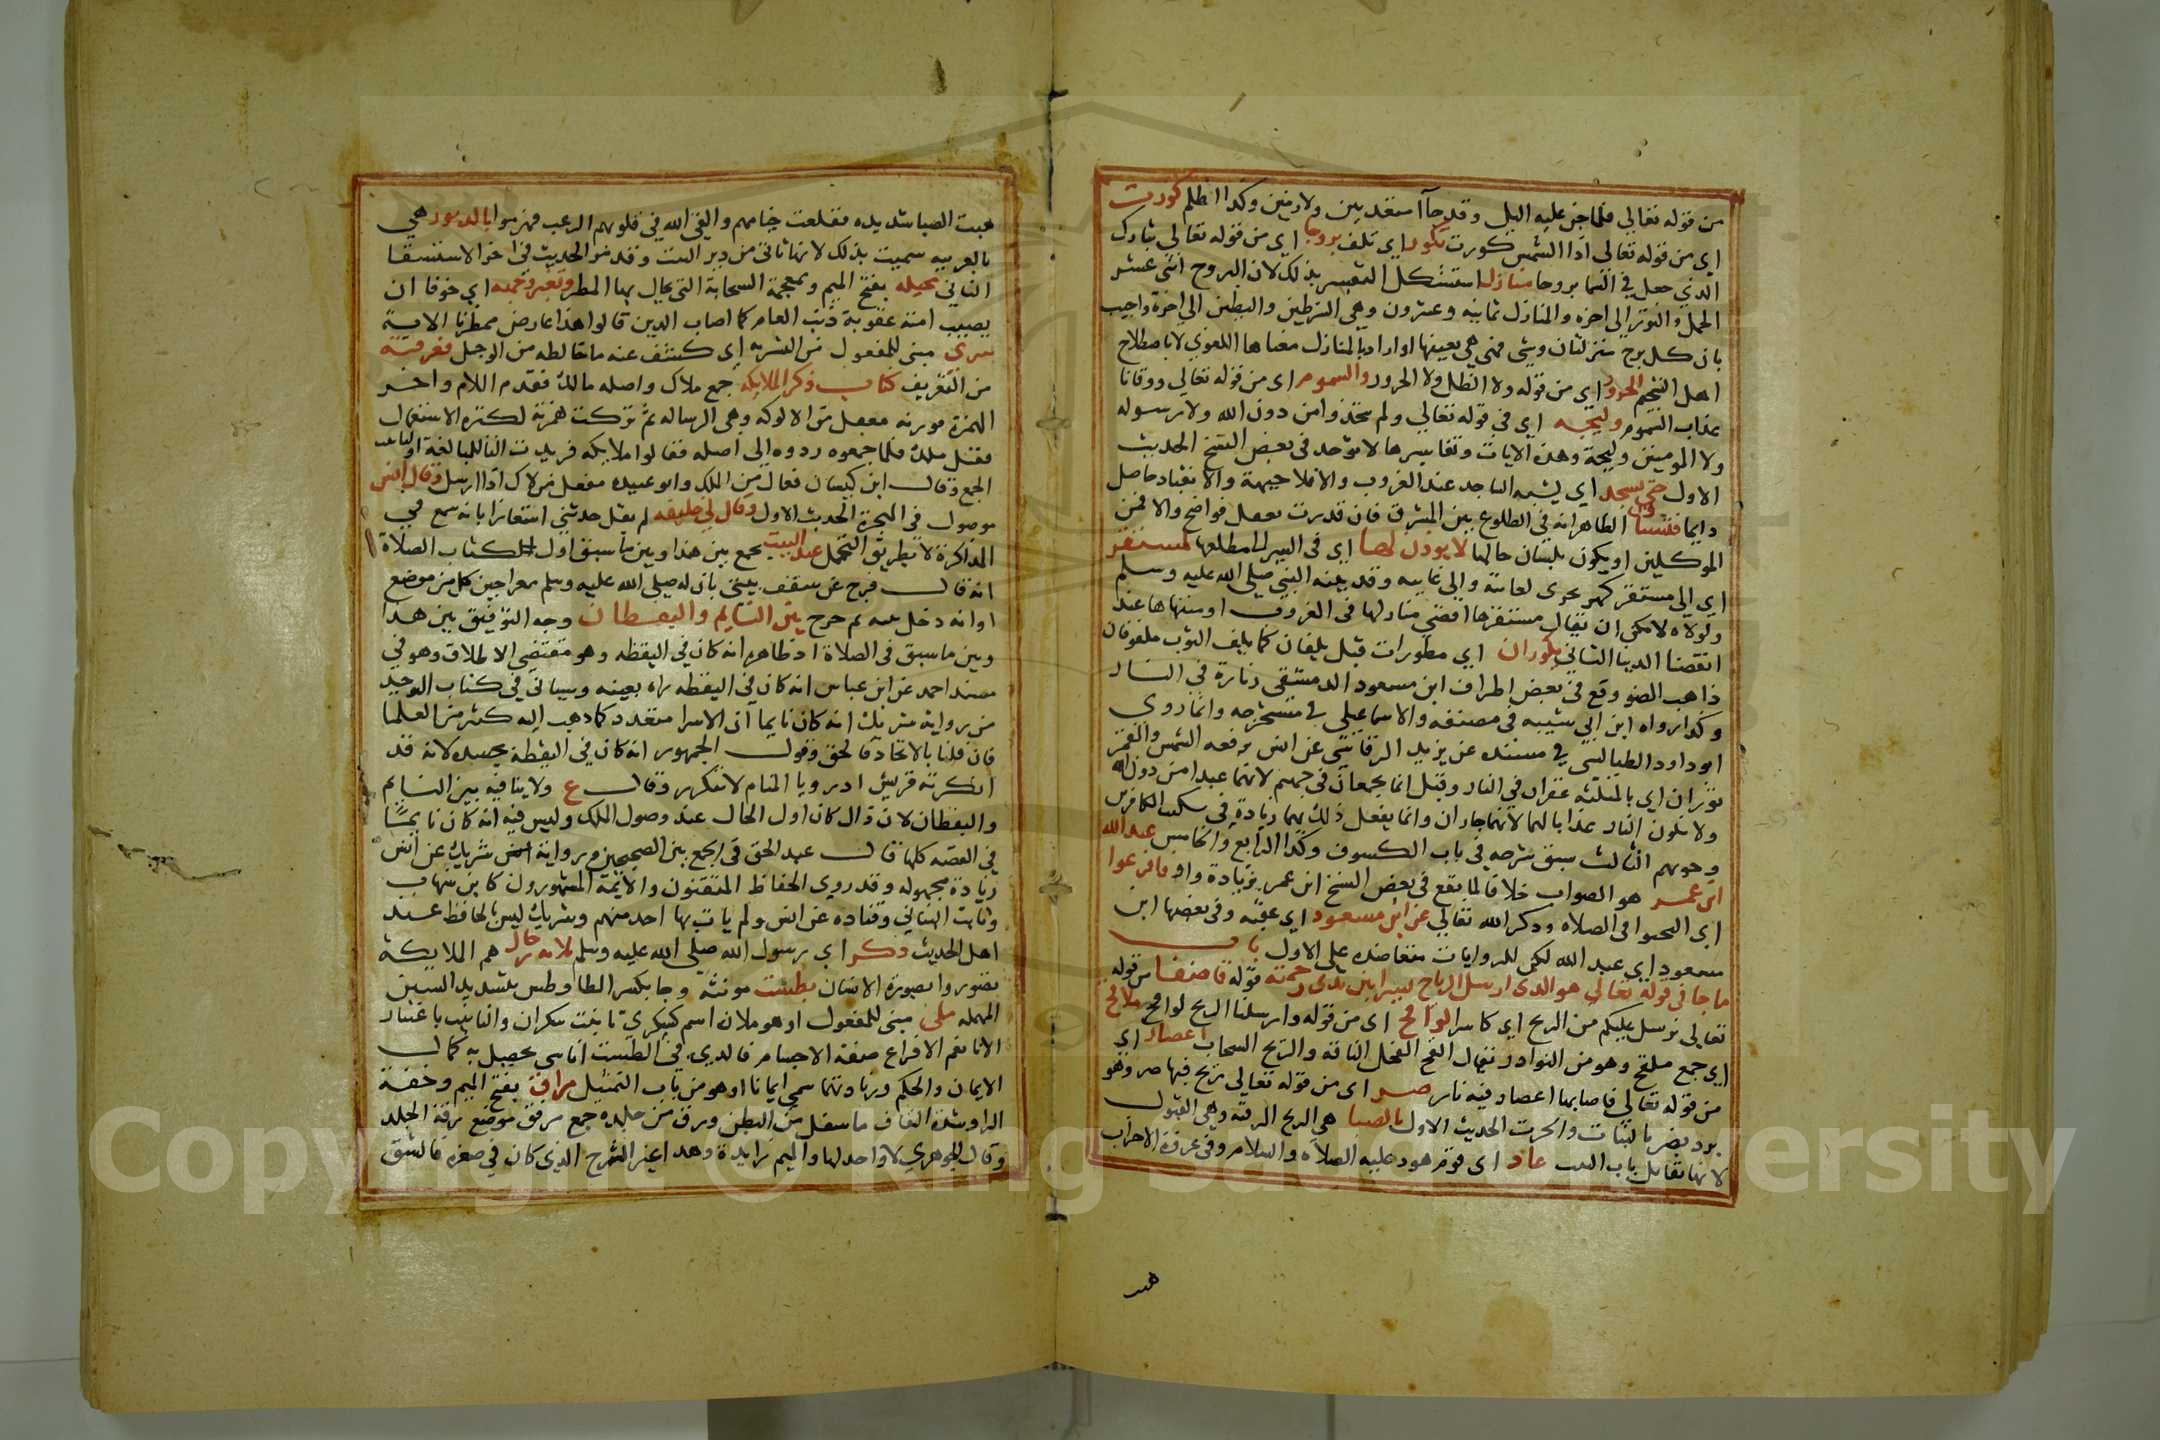 من قوله تعالي فلما جن عليه اليل وقد جاآ متعديين ولازمين وكذا اظلم كورت
اي من قوله تعالى اذا الشمس كورت تكور اي تلف بروجا اي من قوله تعالي تبارك
الذي جعل في السما بروجا منازل استشكل التفسير بذلك لان البروج اثني عشر
الحمل والثور الي اخره والمنازل ثمانيه وعشرون وهي الشرطين والبطين الي اخره واجيب
بان كل برج منزلتان وشي فهي هي بعينها او اراد بالمنازل معناها اللغوي لا باصطلاح
اهل النجم الحرور اي من قوله ولا الظل ولا الحرور والسموم اى من قوله تعالي ووقانا
عذاب السموم وليجه اي في قوله تعالي ولم يتخذوا من دون الله ولا رسوله
ولا المومنين وليجة وهذه الايات وتفاسيرها لا توجد في بعض النسخ الحديث
الاول حتى تسجد اي يشبه الساجد عند الغروب والا فلا جبهة والانقياد حاصل
دايما فتستأذن الظاهر انه في الطلوع بين المشرق فان قدرت بعقل فواضح والا فمن
الموكلين او يكون بلسان حالها لا يوذن لها اي في السير الى مطلعها لمستقر
اي الي مستقر
ولولاه لامكن ان يقال مستقرها اقصى منازلها في الغروب او منتهاها عند
انقضا الدنيا الثاني مكوران اي مطورات قيل يلفان كما يلف الثوب ملفوفان
ذاهب الضو وقع في بعض اطراف ابن مسعود الدمشقي زيادة في النار
وكذا رواه ابن ابي شيبه في مصنفه والاسماعيلي في مستخرجه وانما روي
ابو داود الطيالسي في مسنده عن يزيد الرقاشي عن انس يرفعه الشمس والقمر
ثوران اي بالمثلثه عقران في النار وقيل انما يجمعان في جهنم لانهما عبدا من دون الله
ولا تكون النار عذابا لهما لانهما جادان وانما يفعل ذلك بهما زيادة في تبكيت الكافرين
الثالث سبق شرحه في باب الكسوف وكذا الرابع والخامس عبد الله
ابن عمر هو الصواب خلافا لما يقع في بعض النسخ ابن عمرو بزيادة واو فافزعوا
اي التجئوا الى الصلاه وذكر الله تعالي عن ابن مسعود اي عقبه وفي بعضها ابن
مسعود اي عبد الله لكن الروايات متعاضده على الاول باب
ما جا في قوله تعالي هو الذي ارسل الرياح نشرا بين يدي رحمته قوله قاصفا من قوله
تعالي نرسل عليكم من الريح اي كاسرا لواقح اى من قوله وارسلنا الريح لواقح ملاقح
اي جمع ملقح وهو من النوادر يقال القح الفحل الناقه والريح السحاب اعصار اي
من قوله تعالي فاصابها اعصار فيه نار صر اى من قوله تعالي ريح فيها صر وهو
برد يضر بالنبات والحرث الحديث الاول بالصبا هي الريح الشرقيه وهي القبول
لانها تقابل باب البيت عاد اى قوم هود عليه الصلاة والسلام وفي غزوة الاحزاب
هبت
هبت الصبا شديده فقلعت خيامهم والقى الله في قلوبهم الرعب فهزموا بالدبور هي
الغربيه سميت بذلك لانها تاتى من دبر البيت وقد مر الحديث في اخر الاستسقا
الثاني مخيله بفتح الميم وبمعجمة السحابة التي يخال بها المطر وتغير وجهه اي خوفا ان
يصيب امته عقوبة ذنب العامه كما اصاب الذين قالوا هذا عارض ممطرنا الاية
سري مبنى للمفعول من التسريه اي كشف عنه ما خالطه من الوجل فعرفته
من التعريف كتاب ذكر الملايكه جمع ملاك واصله مالك فقدم اللام واخر
الهمزة موزنه معفل من الالوكه وهي الرساله ثم تركت همزته لكثرة الاستعمال
فقيل ملك فلما جمعوه ردوه الي اصله فقالوا ملايكه فزيدت التا للمبالغة او لتانيث
الجمع وقال ابن كيسان فعال من الملك وابو عبيده مفعل من لاك اذا ارسل وقال انس
موصول في الهجرة الحديث الاول وقال لي خليفه لم يقل حدثني اشعارا بانه سمع في
المذاكرة لا بطريق التحمل عند البيت يجمع بين هذا وبين ما سبق اول كتاب الصلاة
انه قال فرج عن سقف بيتى بان له صلي الله عليه وسلم معراجين كل من موضع
او انه دخل بيته ثم خرج بين النايم واليقظان وجه التوفيق بين هذا
وبين ما سبق في الصلاة اذ ظاهره انه كان في اليقظه وهو مقتضي الاطلاق وهو في
مسند احمد عن ابن عباس انه كان في اليقظه راه بعينه وسياتي في كتاب التوحيد
من رواية شريك انه كان نايما ان الاسرا متعدد كما ذهب اليه كثير من العلما
فان قلنا بالاتحاد فالحق وقول الجمهور انه كان في اليقظة بجسده لانه قد
انكرته قريش اذ رويا المنام لا تنكر وقال ع ولا ينافيه بين النايم
واليقظان لان ذلك كان اول الحال عند وصول الملك وليس فيه انه كان نايما
في القصه كلها قال عبد الحق في الجمع بين الصحيحين رواية شريك عن انس
زيادة مجهوله وقد روي الحفاظ المتقنون والايمة المشهورون كابن شهاب
وثابت البناني وقتاده عن انس ولم يات بها احد منهم وشريك ليس بالحافظ عند
اهل الحديث وذكر اي رسول الله صلى الله عليه وسلم ثلاثه رجال هم الملايكة
تصوروا بصورة الانسان بطست مونثه وجا بكسر الطا وطس بتشديد السين
المهمله ملئ مبنى للمفعول او هو ملان اسم كسكرى تانيث سكران والتانيث باعتبار
الانا نعم الافراغ صفة الاجسام فالذي في الطست اناس يحصل به كمال
الايمان والحكم وزيادتهما سمى ايمانا او هو من باب التمثيل مراق بفتح الميم وخفة
الرا وشدة القاف ما سفل من البطن ورق من جلده جمع مرق موضع رقة الجلد
وقال الجوهري لا واحد لها والميم زايدة وهذا غير الشرح الذي كان في صغره فالشق